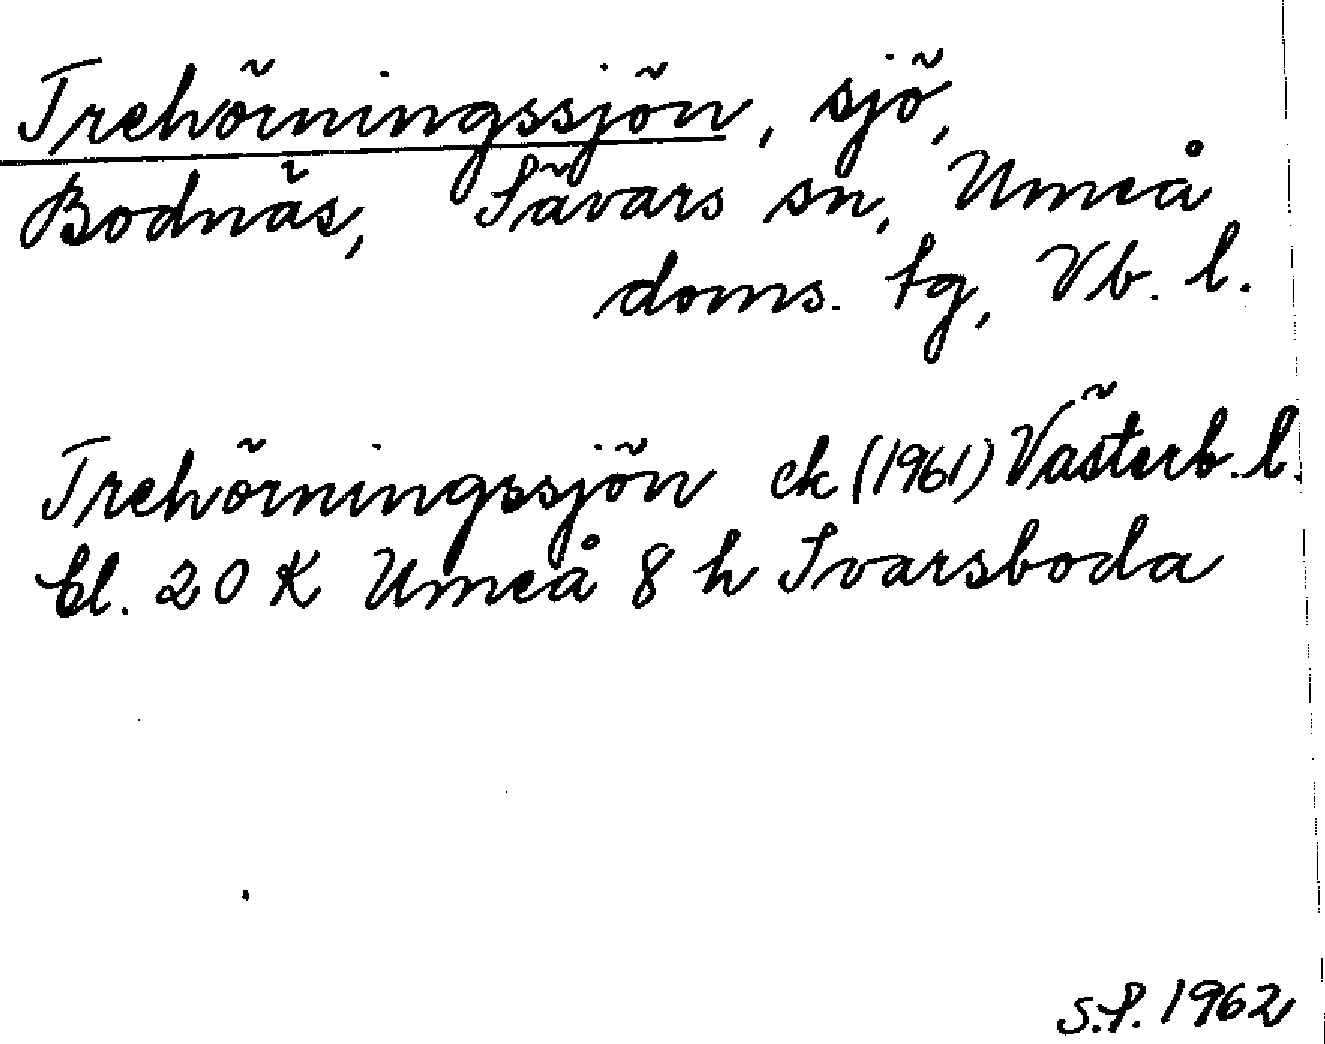 Trehörningssjön, sjö,
Bodnäs, Sävars sn, Umeå
doms. tg, Vb. l.
Trehörningssjön ek (1961) Västerb. l.
bl. 20 K Umeå 8 h Ivarsboda
S.P. 1962